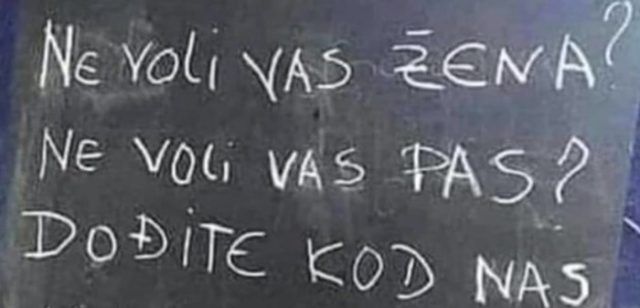 NE VOLI VAS ŽENA?
NE VOLI VAS PAS?
DOĐITE KOD NAS